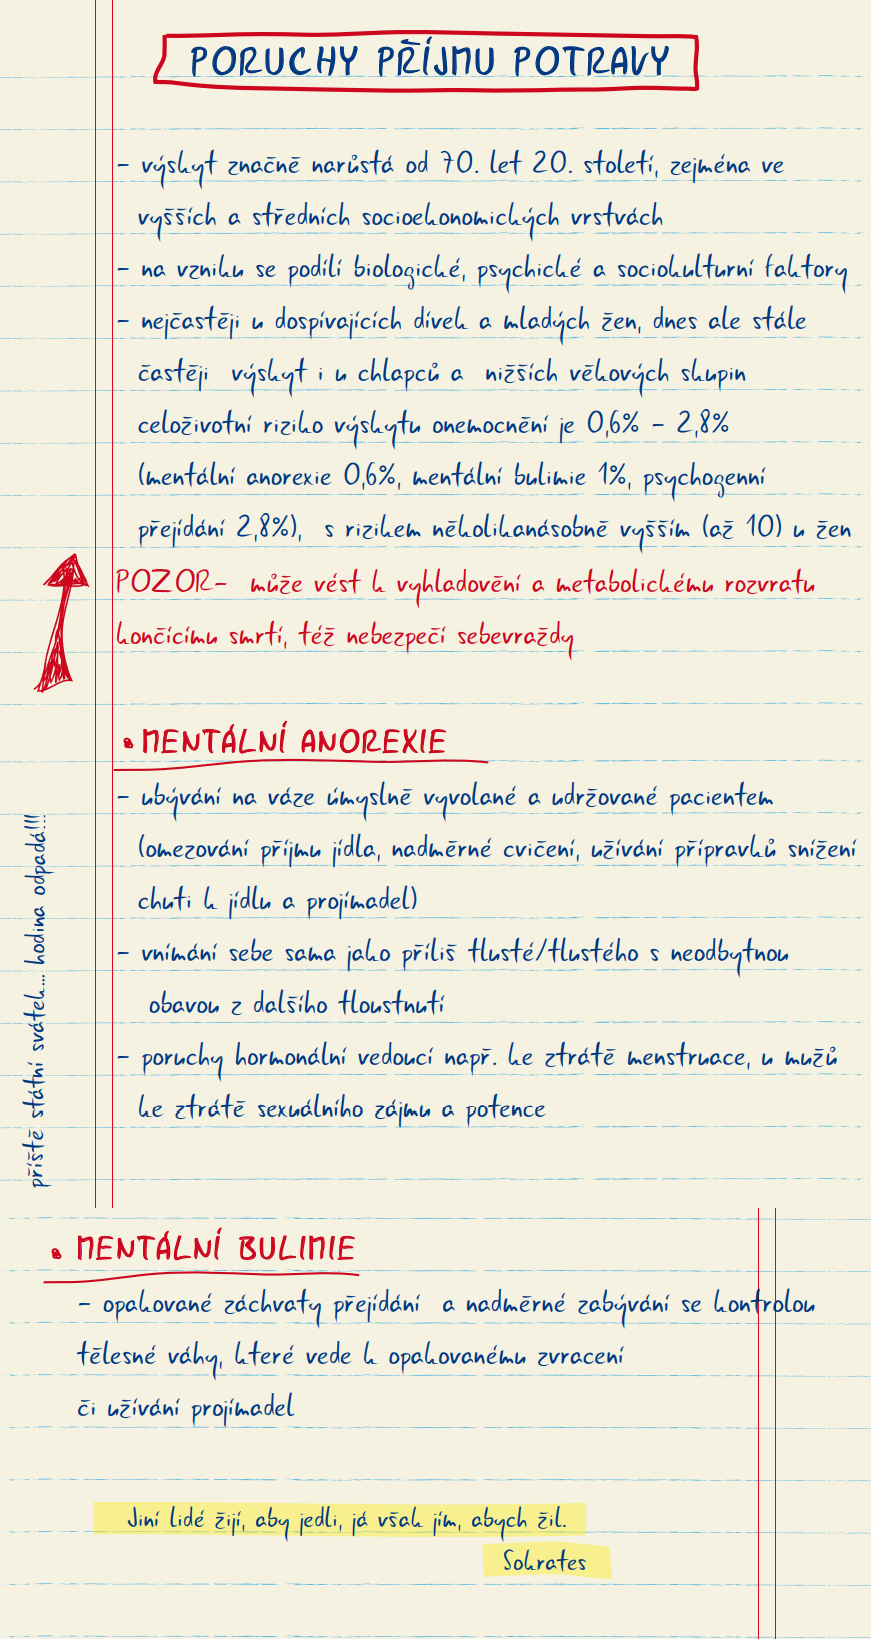 PORUCHY PŘÍJMU POTRAVY
- výskyt značně narůstá od 70. let 20. století, zejména ve
vyšších a středních socioekonomických vrstvách
- na vzniku se podílí biologické, psychické a sociokulturní faktory
- nejčastěji u dospívajících dívek a mladých žen, dnes ale stále
častěji výskyt i u chlapců a nižších věkových skupin
celoživotní riziko výskytu onemocnění je 0,6% - 2,8%
(mentální anorexie 0,6%, mentální bulimie 1%, psychogenní
přejídání 2,8%), s rizikem několikanásobně vyšším (až 10) u žen
POZOR- může vést k vyhladovění a metabolickému rozvratu
končícímu smrtí, též nebezpečí sebevraždy
• MENTÁLNÍ ANOREXIE
- ubývání na váze úmyslně vyvolané a udržované pacientem
(omezování příjmu jídla, nadměrné cvičení, užívání přípravků snížení
chuti k jídlu a projímadel)
- vnímání sebe sama jako příliš tlusté/tlustého s neodbytnou
obavou z dalšího tloustnutí
- poruchy hormonální vedoucí např. ke ztrátě menstruace, u mužů
ke ztrátě sexuálního zájmu a potence
příště státní svátek... hodina odpadá!!!
• MENTÁLNÍ BULIMIE
- opakované záchvaty přejídání a nadměrné zabývání se kontrolou
tělesné váhy, které vede k opakovanému zvracení
či užívání projímadel
Jiní lidé žijí, aby jedli, já však jím, abych žil.
Sokrates